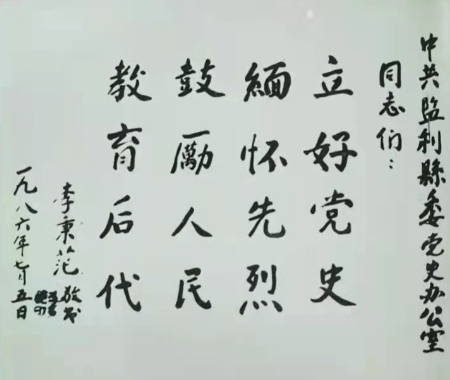 中共监利縣委党史办公室
同志们：
立好党史
緬怀先烈
鼓励人民
教育后代
李秉范 敬书
一九八六年七月五日